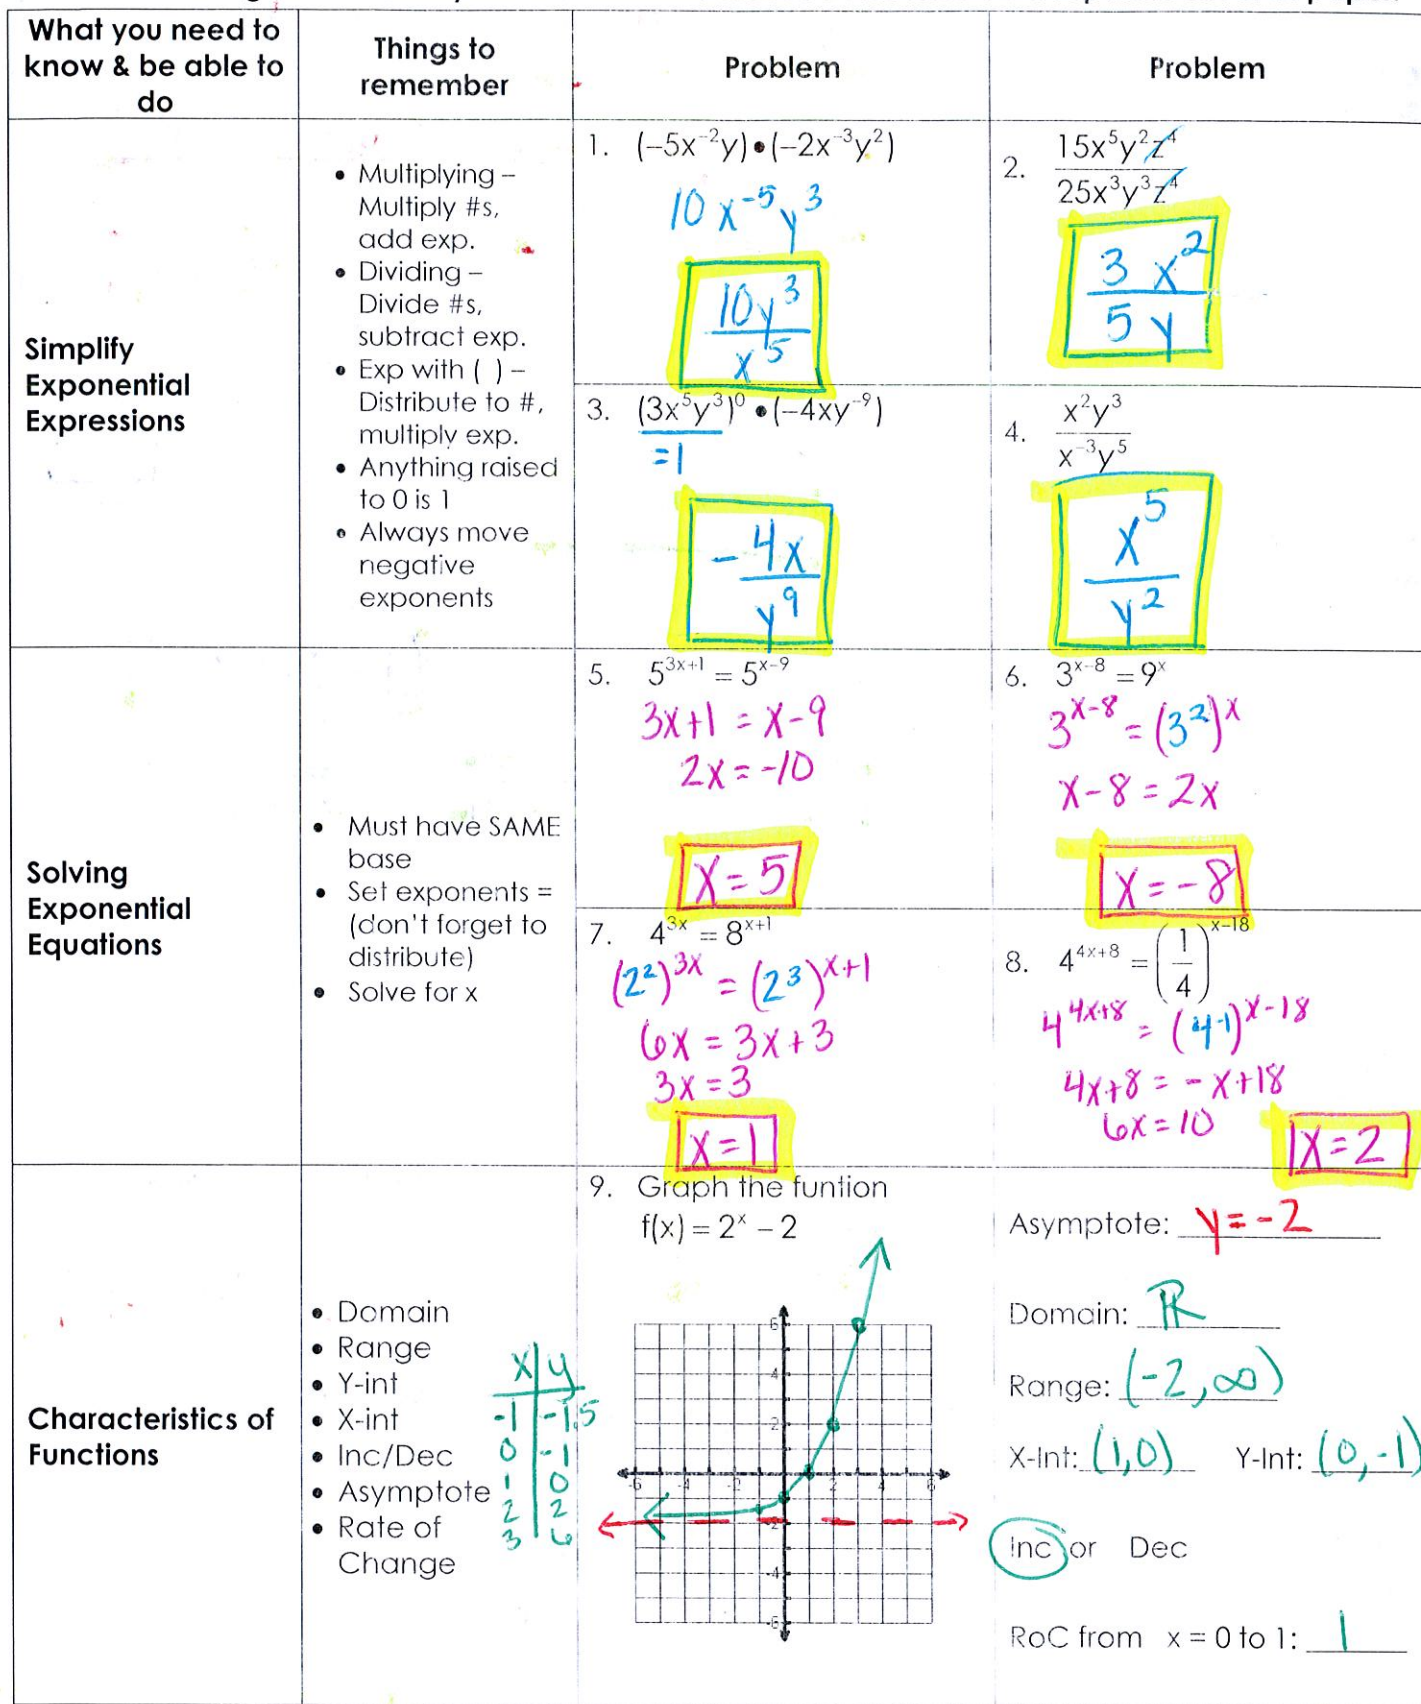 What you need to
know & be able to
do
Things to
remember
Problem
Problem
Simplify
Exponential
Expressions
• Multiplying –
Multiply #s,
add exp.
• Dividing –
Divide #s,
subtract exp.
• Exp with ( ) –
Distribute to #,
multiply exp.
• Anything raised
to 0 is 1
• Always move
negative
exponents
1. (−5x⁻²y)•(−2x⁻³y²)
10x⁻⁵y³
10y³
x⁵
2. 15x⁵y²z⁴
25x³y³z⁴
3 x²
5 y
3. (3x⁵y³)⁰•(−4xy⁻⁹)
=1
- 4x
y⁹
4. x²y³
x⁻³y⁵
x⁵
y²
Solving
Exponential
Equations
• Must have SAME
base
• Set exponents =
(don't forget to
distribute)
• Solve for x
5. 5³ˣ⁺¹ = 5ˣ⁻⁹
3x+1 = x-9
2x = -10
x = 5
6. 3ˣ⁻⁸ = 9ˣ
3ˣ⁻⁸ = (3²)ˣ
x-8 = 2x
x = -8
7. 4³ˣ = 8ˣ⁺¹
(2²)³ˣ = (2³)ˣ⁺¹
6x = 3x+3
3x = 3
x = 1
8. 4⁴ˣ⁺⁸ = (1/4)ˣ⁻¹⁸
4⁴ˣ⁺⁸ = (4⁻¹)ˣ⁻¹⁸
4x+8 = -x+18
6x = 10
x = 2
Characteristics of
Functions
• Domain
• Range
• Y-int
• X-int
• Inc/Dec
• Asymptote
• Rate of
Change
x y
-1 -1.5
0 -1
1 0
2 2
3 6
9. Graph the funtion
f(x) = 2ˣ − 2
6
4
2
-6 -4 -2 2 4 6
-2
-4
-6
Asymptote: y = -2
Domain: ℝ
Range: (-2, ∞)
X-Int: (1,0) Y-Int: (0,-1)
Inc or Dec
RoC from x = 0 to 1: 1